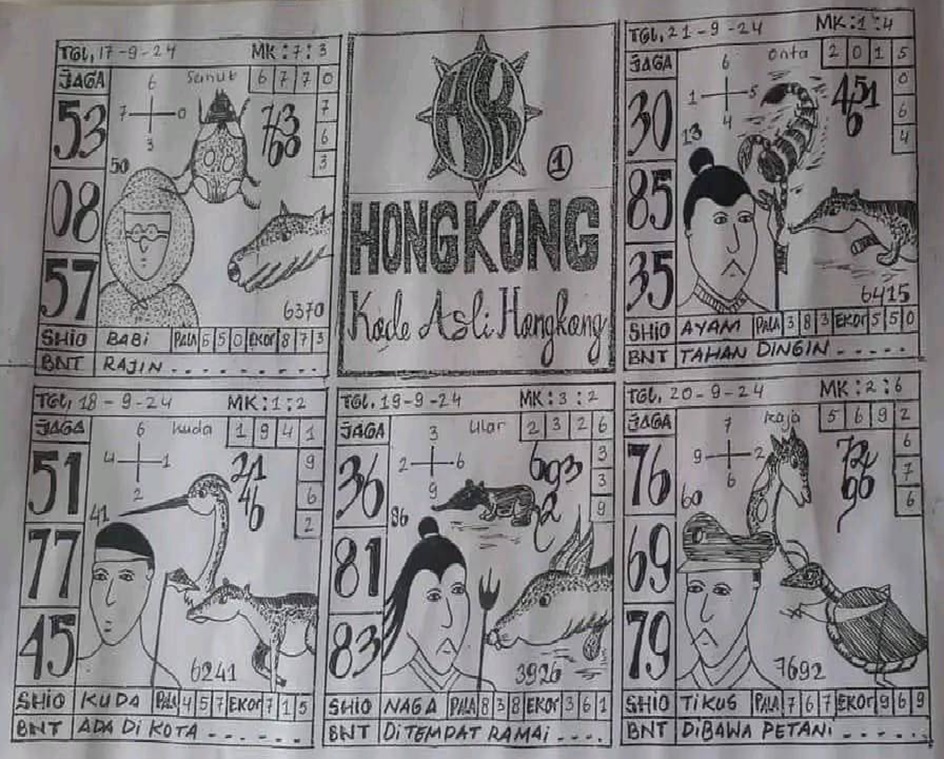 TGL, 17-9-24 MK:7:3
JAGA 6 Semut 6 7 7 0
53 7 0 73 7
3 68 6
50 3
08
57 6370
SHIO BABI PALA 6 5 0 EKOR 8 7 3
BNT RAJIN . . . . . . . . .
1
HONGKONG
Kode Asli Hongkong
TGL, 21-9-24 MK:1:4
JAGA 6 Onta 2 0 1 5
30 1 5 451 0
4 6 6
13 4
85
35 6415
SHIO AYAM PALA 3 8 3 EKOR 5 5 0
BNT TAHAN DINGIN - - - - -
TGL, 18-9-24 MK:1:2
JAGA 6 Kuda 1 9 4 1
51 4 1 21 9
2 46 6
41 2
77
45 6241
SHIO KUDA PALA 4 5 7 EKOR 7 1 5
BNT ADA DI KOTA - - - - - -
TGL. 19-9-24 MK:3:2
JAGA 3 Ular 2 3 2 6
36 2 6 693 3
9 2 3
86 9
81
83 3926
SHIO NAGA PALA 8 3 8 EKOR 3 6 1
BNT DITEMPAT RAMAI - - - -
TGL, 20-9-24 MK:2:6
JAGA 7 Raja 5 6 9 2
76 9 2 6
6 96 7
60 6
69
79 7692
SHIO TIKUS PALA 7 6 7 EKOR 9 6 9
BNT DIBAWA PETANI - - - - -